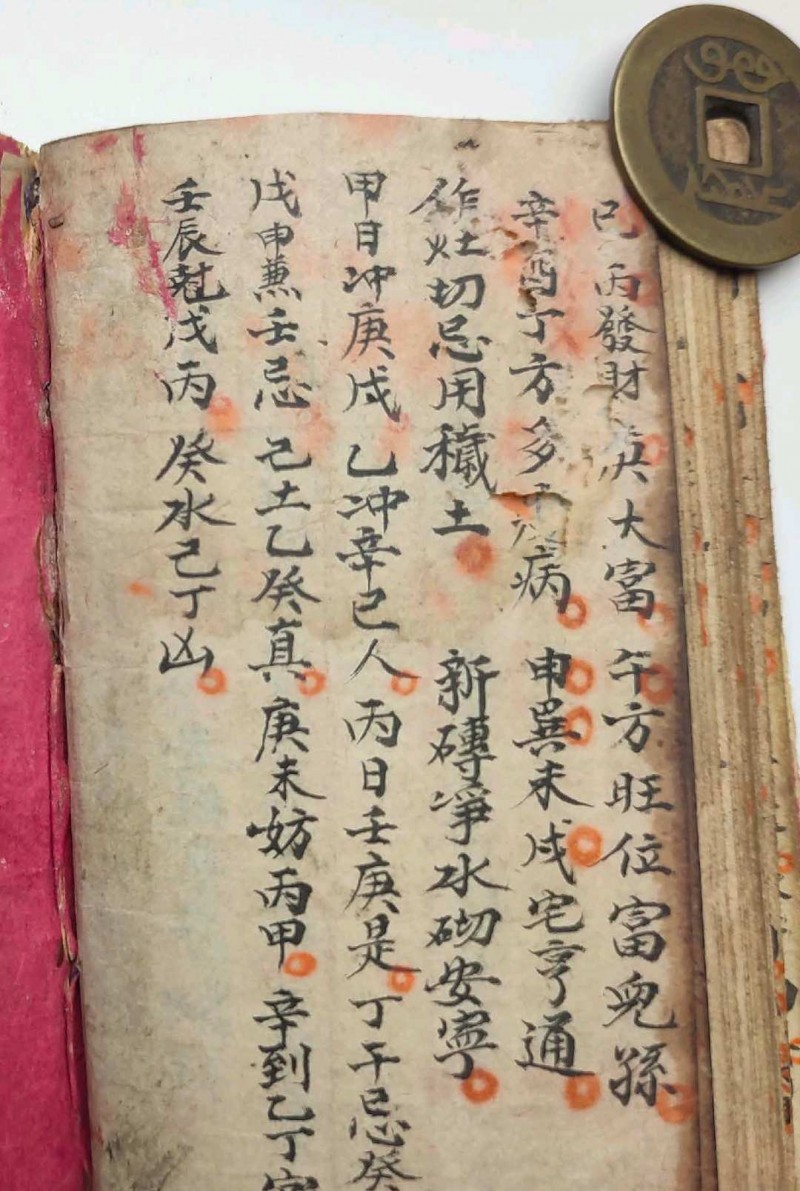 巳丙發財 大富 午方旺位富兒孫
辛酉丁方多 病 申巽未戌宅亨通
作灶切忌用穢土 新磚凈水砌安寧
甲日冲庚戌 乙冲辛巳人 丙日壬庚是 丁干忌癸
戊申兼壬忌 己土乙癸真 庚未妨丙甲 辛到乙丁
壬辰尅戊丙 癸水己丁凶